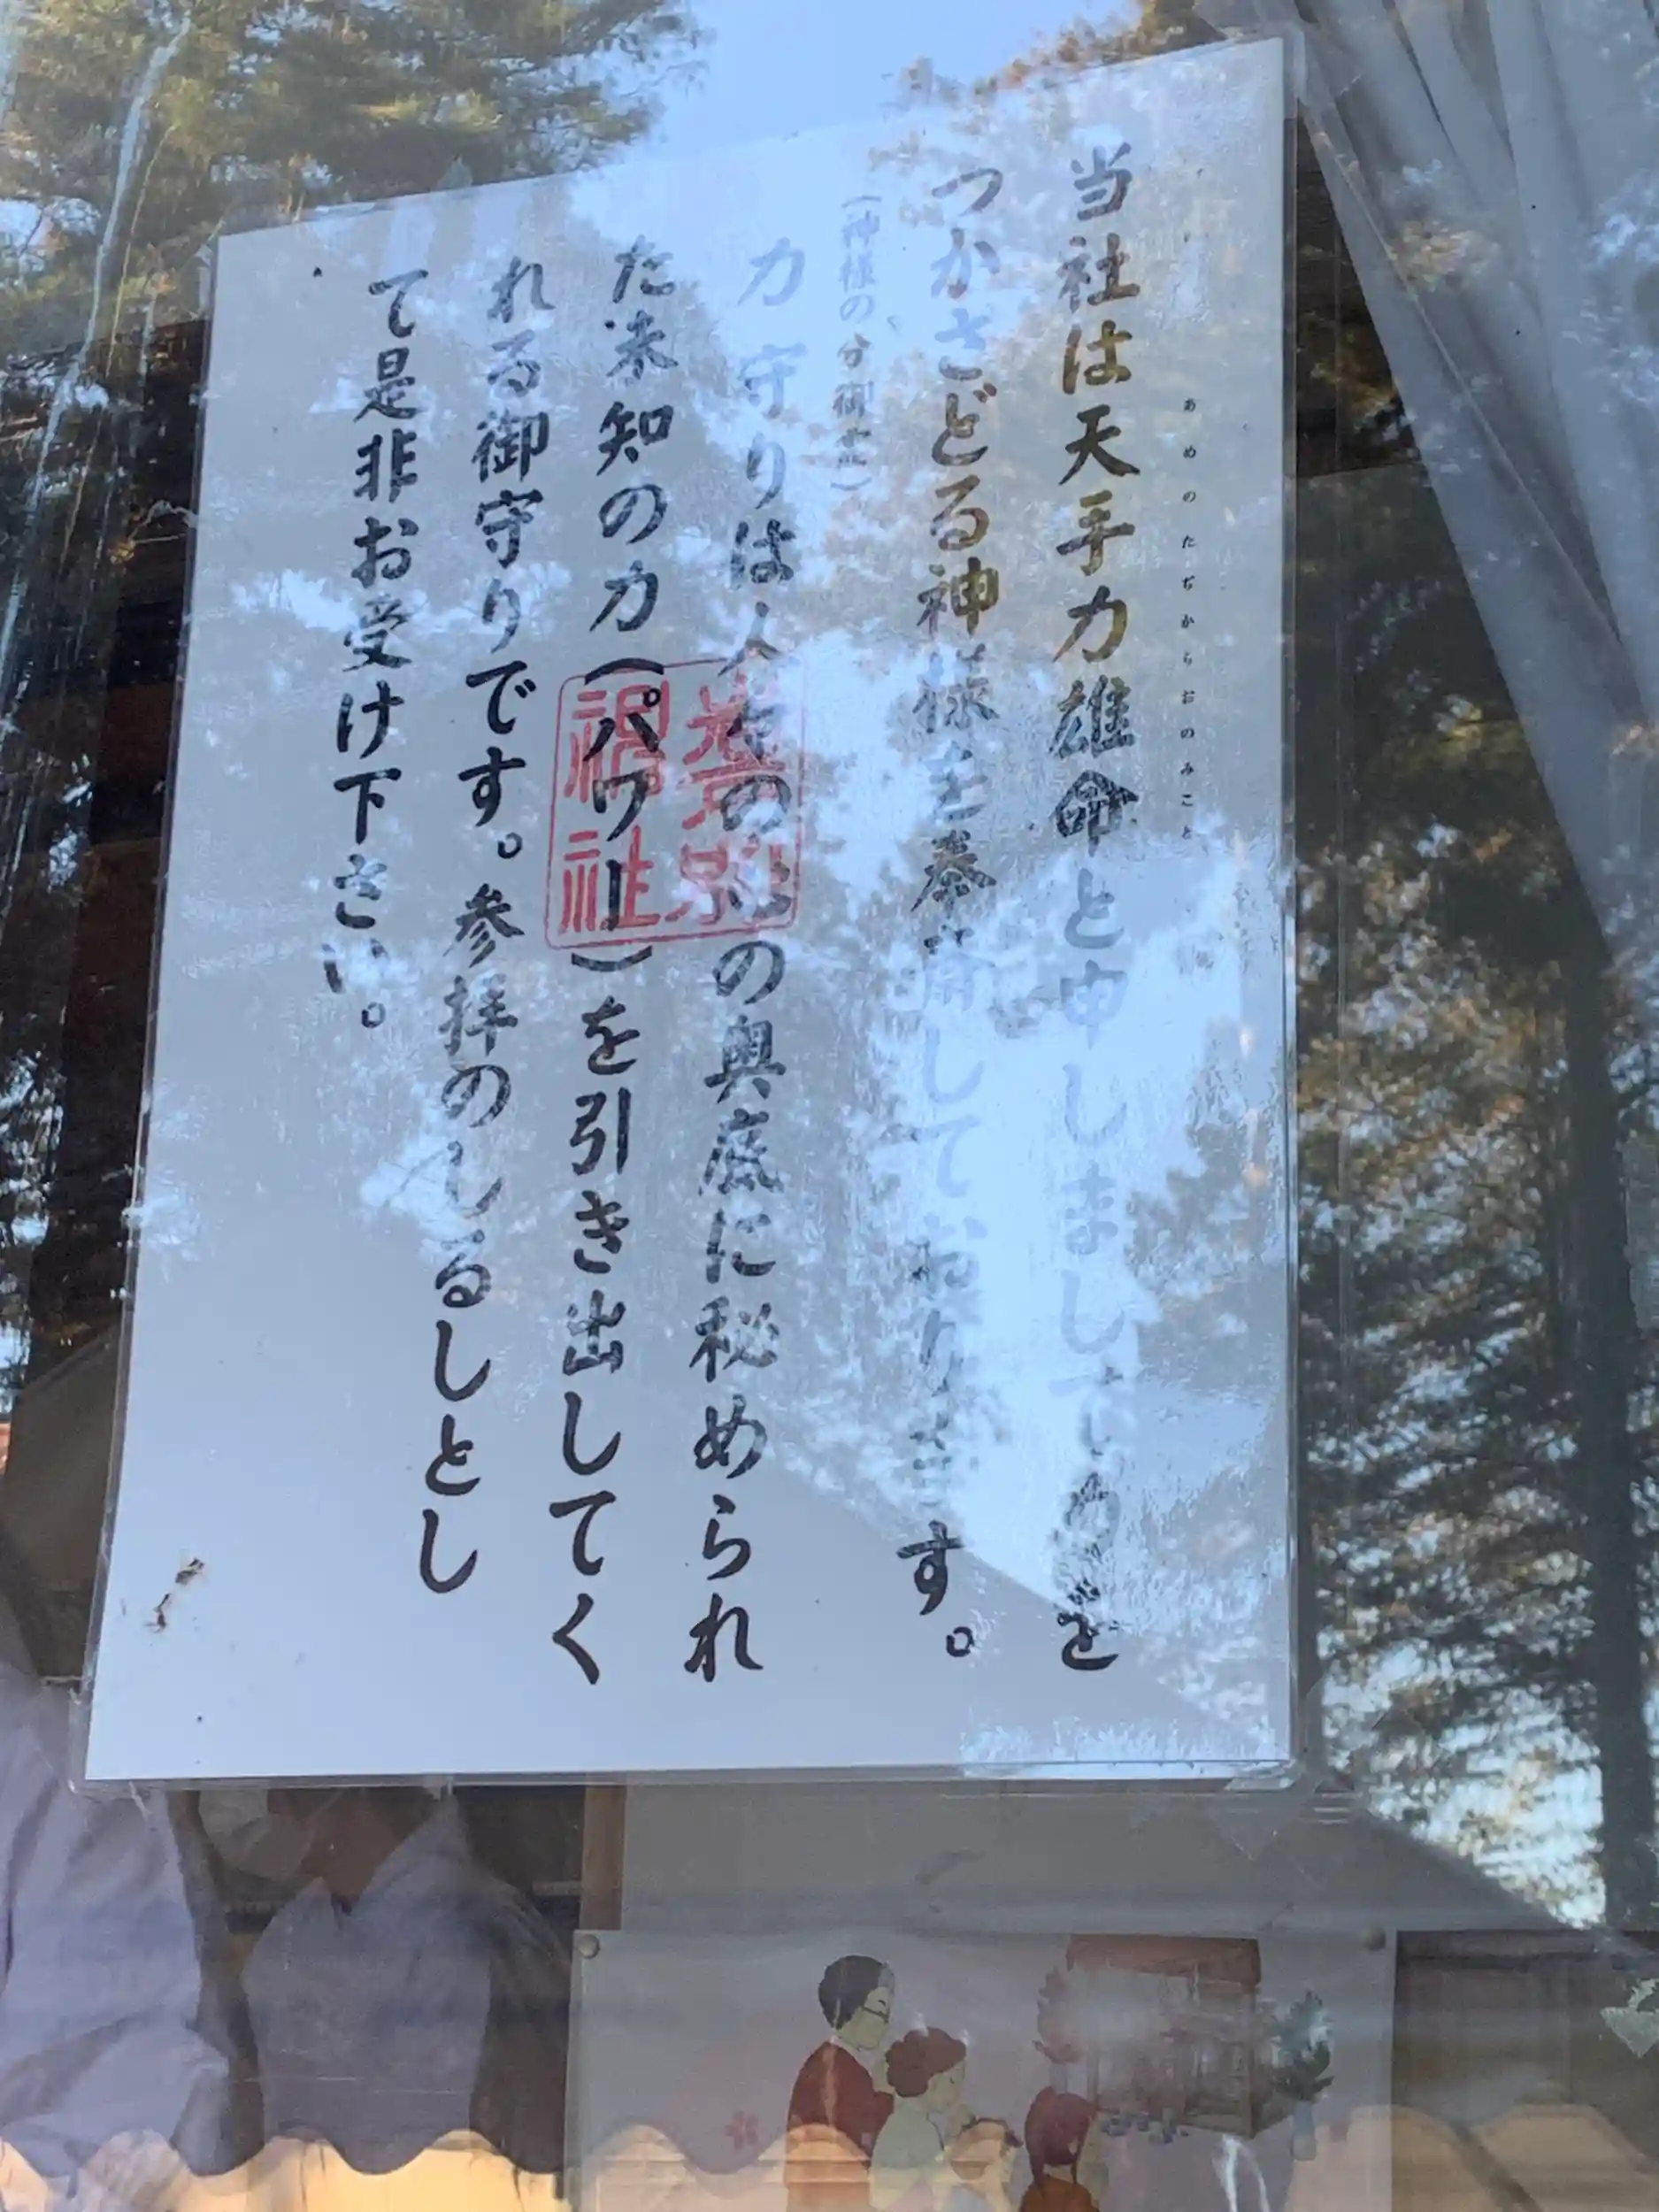 当社は天手力雄命と申しまして力を
あめのたぢからおのみこと
つかさどる神様を奉斎しております。
(神様の分御霊)
力守りは人々の心の奥底に秘められ
た未知の力(パワー)を引き出してく
れる御守りです。参拝のしるしとし
て是非お受け下さい。
神社